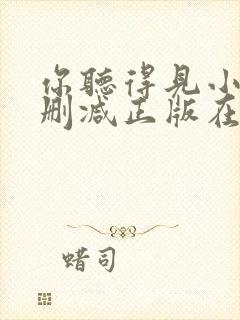 你聽得見小
刪減正版在
蜡司